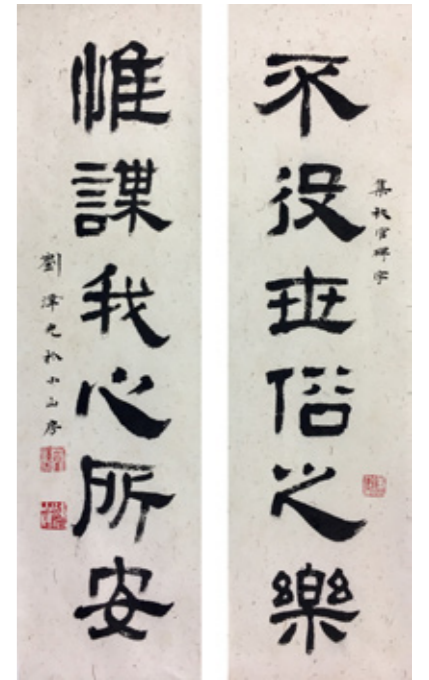 不役世俗之樂
集校官碑字
惟謀我心所安
劉澤光於小山房